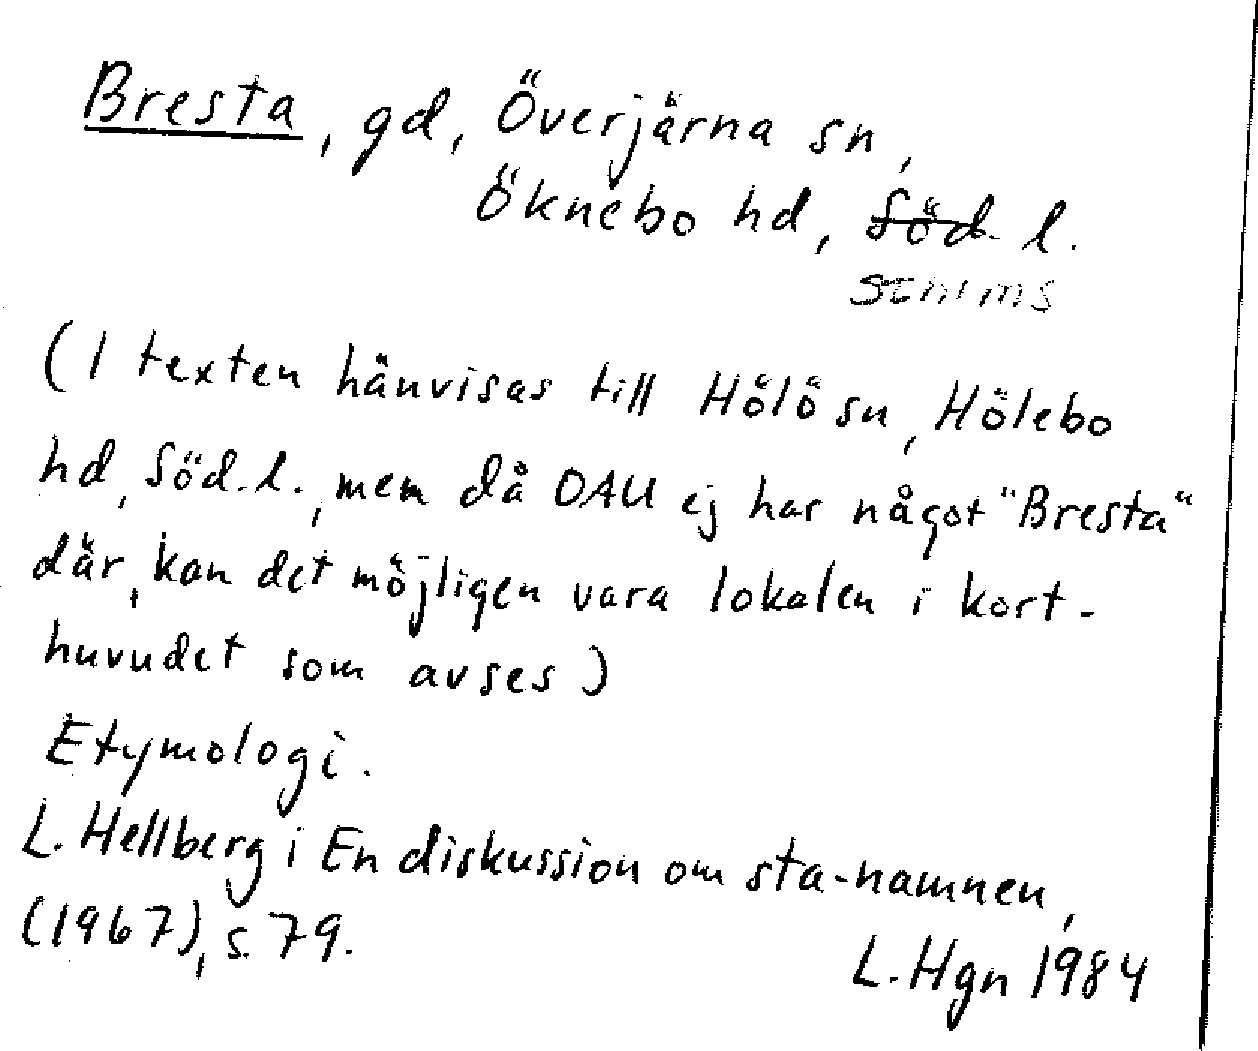 Bresta, gd, Överjärna sn,
Öknebo hd, Söd. l.
Sthlms
(I texten hänvisas till Hölö sn, Hölebo
hd, Söd. l., mem då OAU ej har något "Bresta"
där, kan det möjligen vara lokalen i kort-
huvudet som avses)
Etymologi.
L. Hellberg i En diskussion om sta-namnen,
(1967), s. 79.
L. Hgn 1984